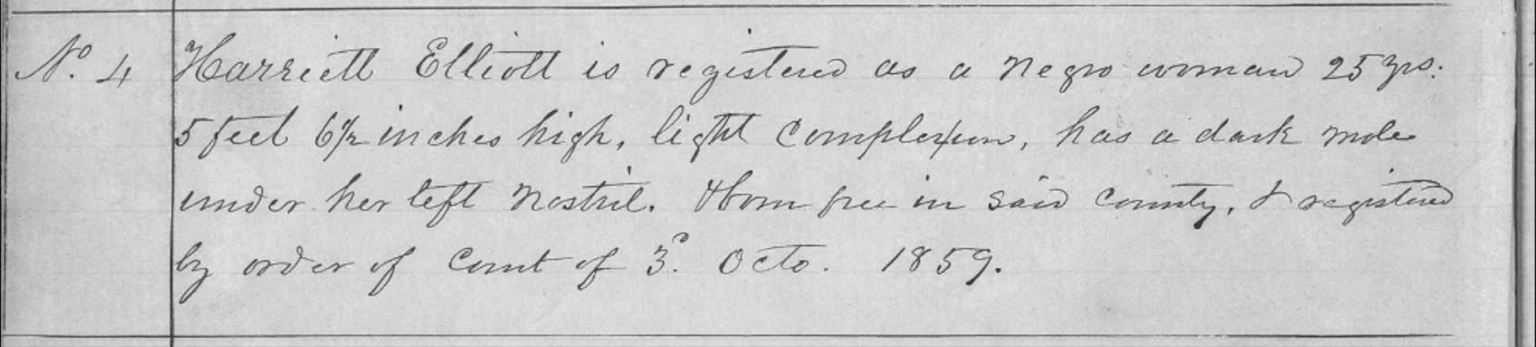 No. 4 Harriett Elliott is registered as a Negro woman 25 yrs:
5 feet 6½ inches high, light complexion, has a dark mole
under her left nostril. & born free in said county, & registered
by order of Court of 3d. Octo. 1859.